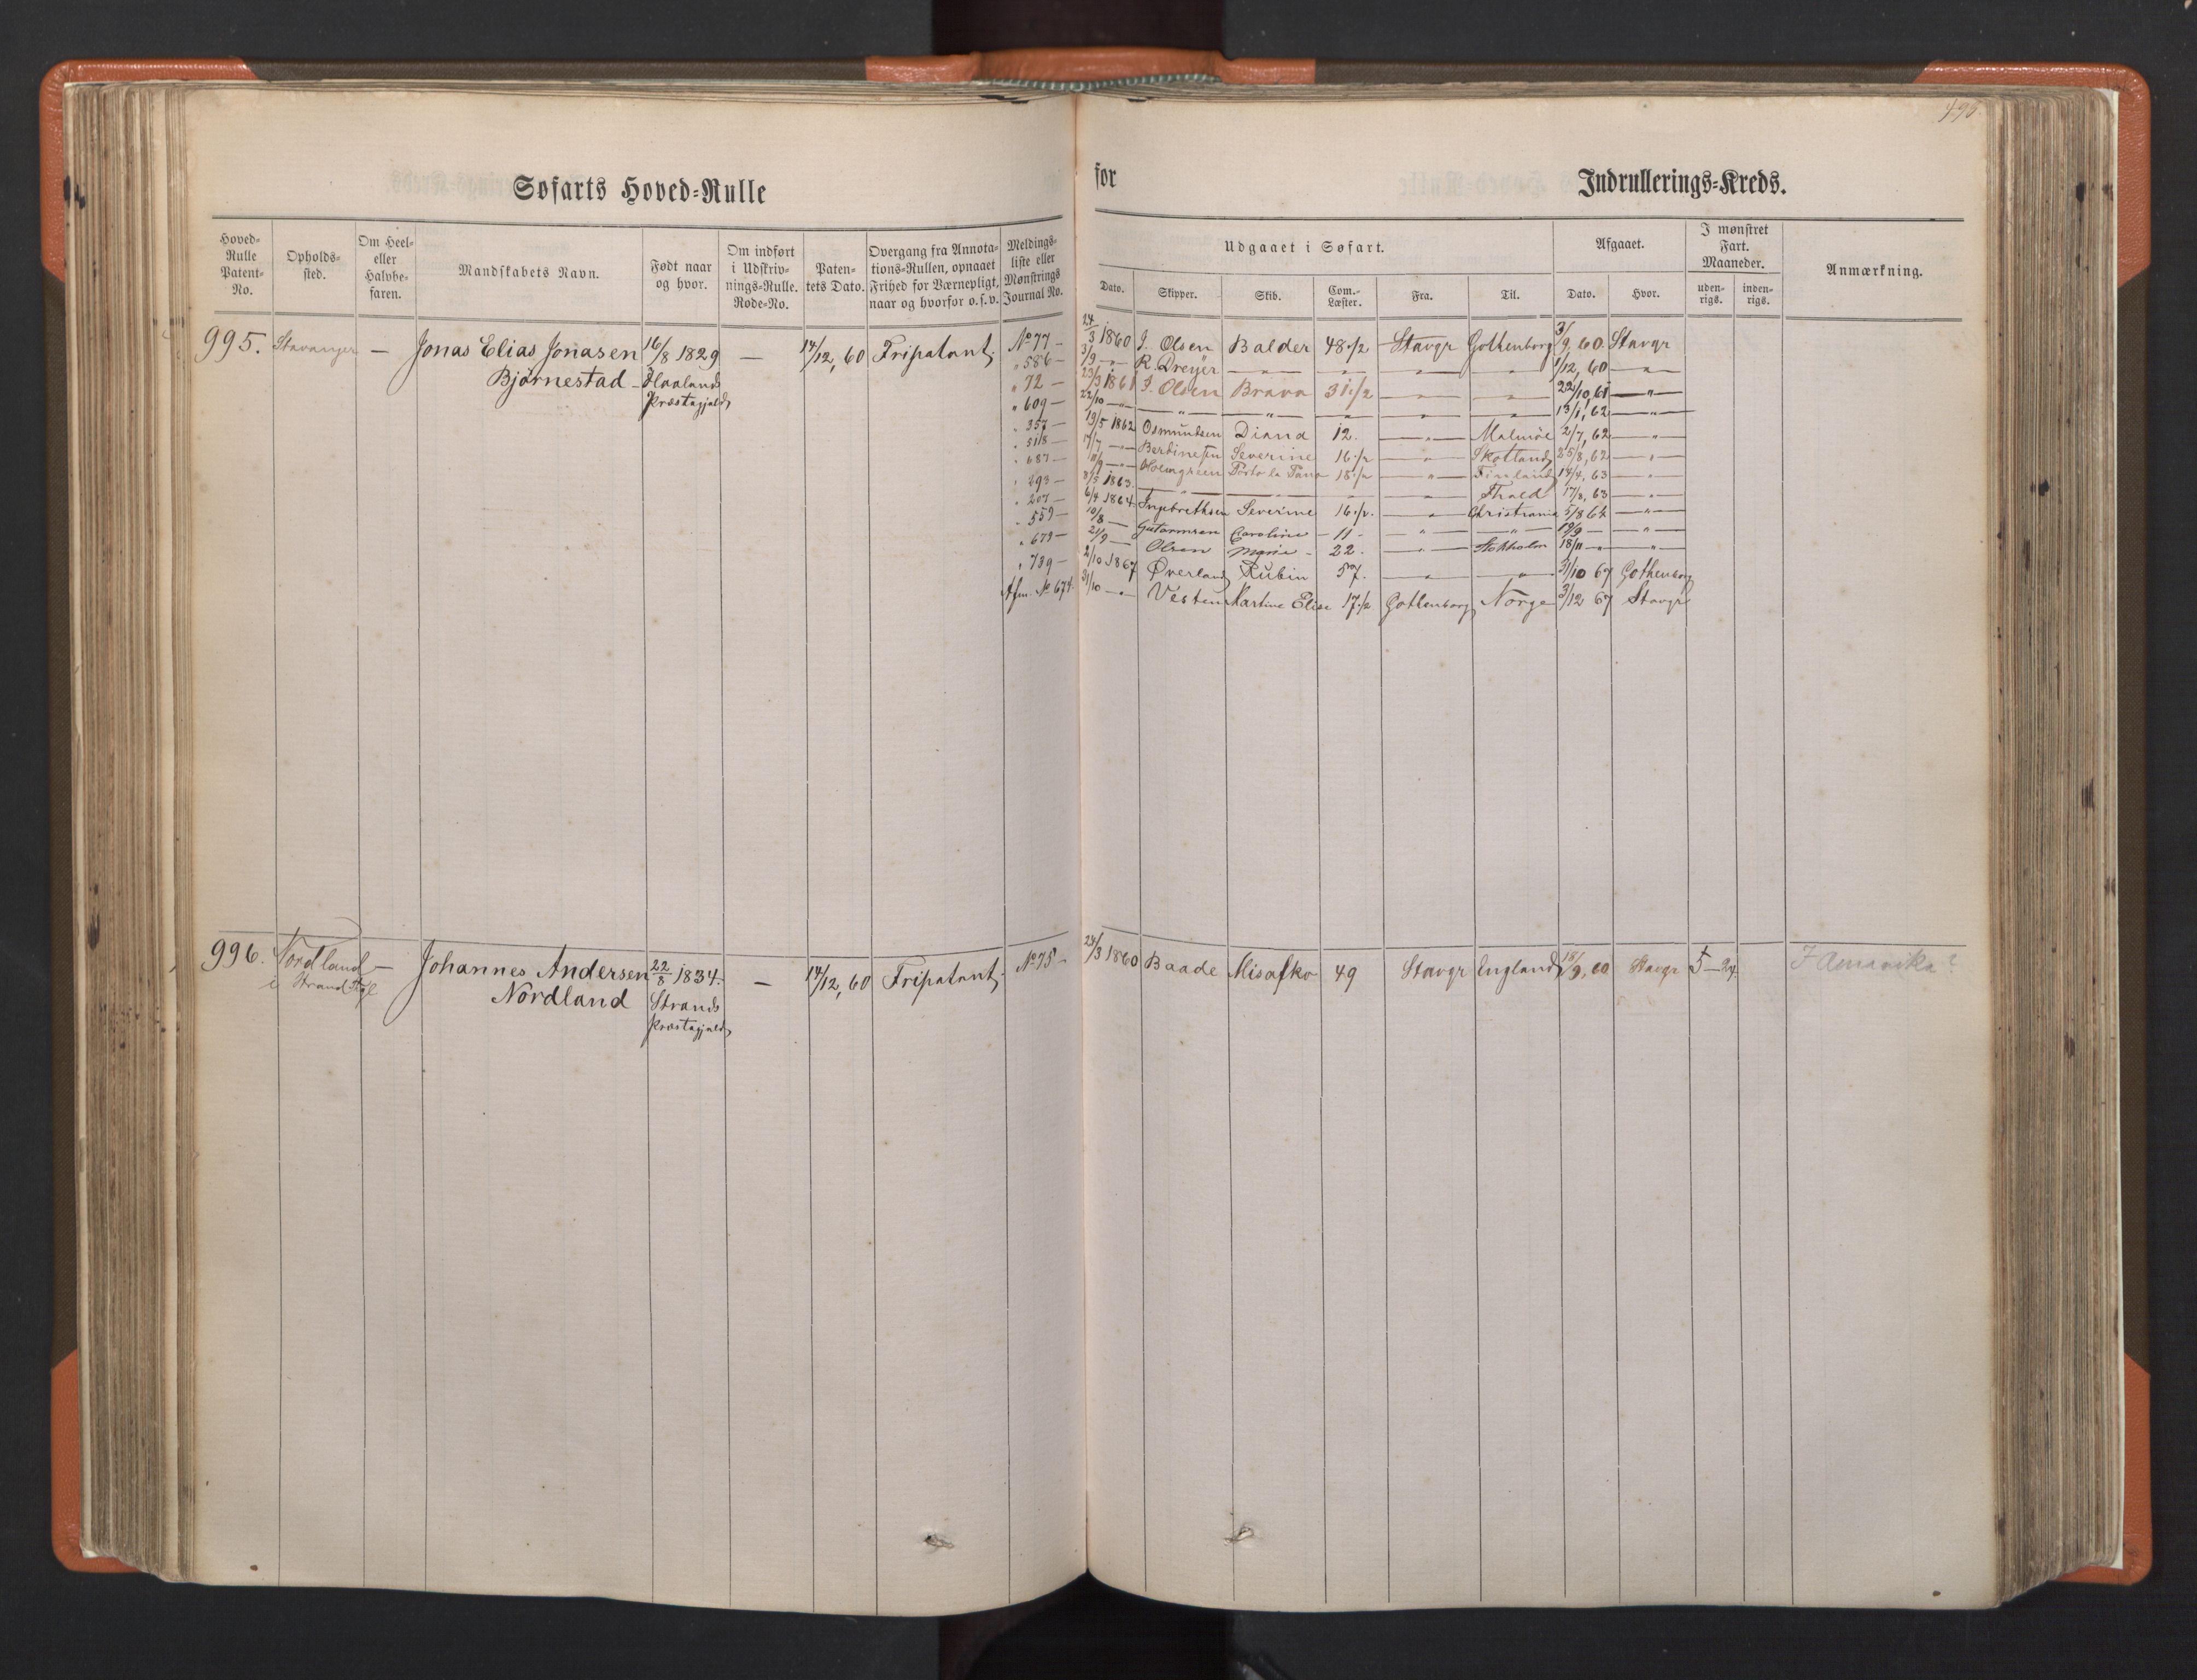 495.
Søfarts Hoved=Rulle for Indrullerings=Kreds.
Hoved=Rulle Patent=No. Opholds=sted. Om Heel= eller Halvbe=faren. Mandskabets Navn. Født naar og hvor. Om indført i Udskriv=nings=Rulle. Rode=No. Paten=tets Dato. Overgang fra Annota=tions=Rullen, opnaaet Frihed for Værnepligt, naar og hvorfor o.s.v. Meldings=liste eller Mønstrings Journal No.
Udgaaet i Søfart. Afgaaet. I mønstret Fart. Maaneder. Anmærkning.
Dato. Skipper. Skib. Com.=Læster. Fra. Til. Dato. Hvor. uden=rigs. inden=rigs.
995. Stavanger — Jonas Elias Jonasen 16/8 1829 — 14/12, 60 Fripatent. No 77 — 24/3 1860 J. Olsen Balder 48 1/2 Stavgr Gothenborg 3/9, 60 Stavgr
Bjørnestad — Haalands Præstegjeld
" 586 — 3/9 —"— R. Dreyer —"— —"— —"— —"— 1/12, 60 —"—
" 72 — 23/3 1861 J. Olsen Brava 31 1/2 —"— —"— 22/10, 61 —"—
" 609 — 22/10 —"— —"— —"— —"— —"— —"— 13/1, 62 —"—
" 357 — 19/5 1862 Osmundsen Diand 12. —"— Malmöe 2/7, 62 —"—
" 518 — 17/7 —"— Berdinesen Severine 16 1/2 " Skotland 25/8, 62 —"—
" 687 — —"— Holmgreen 18 1/2 —"— Finland 14/4, 63 —"—
" 293 — 8/5 1863. —"— —"— —"— —"— 17/8, 63 —"—
" 207 — 6/4 1864 Ingebrethsen Severine 16 1/2. —"— Christiania 5/8 64 —"—
" 559 — 10/8 — Guttormsen Caroline — 11 — —"— —"— 19/9 — —"—
" 679 — 21/9 — Olsen Marie — 22. —"— Stokholm 18/11 —"— "
" 739 — 2/10 1867 Øverland Rubin 57. —"— —"— 31/10 67 Gothenborg
Afm. No 674. 31/10 —"— Vesten Martine Elise 17 1/2 Gothenborg Norge 3/12 67 Stavgr
996. Nordland i Strand Ptgl — Johannes Andersen 22/8 1834. — 14/12, 60 Fripatent. No 75 — 24/3 1860 Baade Misafko 49 Stavgr England 18/9, 60 Stavgr 5—24. I Amerika?
Nordland Strands Præstegjeld